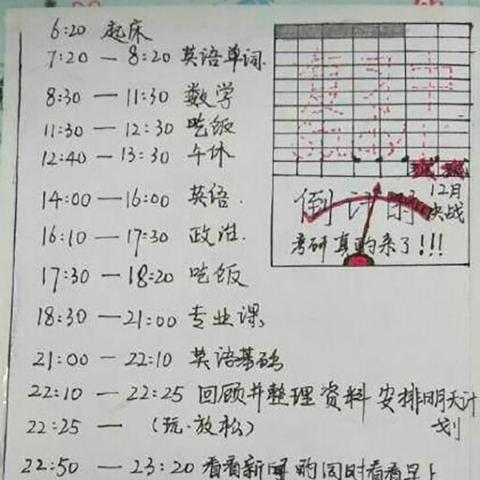 6:20 起床
7:20 — 8:20 英语单词.
8:30 — 11:30 数学
11:30 — 12:30 吃饭
12:40 — 13:30 午休
14:00 — 16:00 英语.
16:10 — 17:30 政治.
17:30 — 18:20 吃饭
18:30 — 21:00 专业课
21:00 — 22:10 英语基础
22:10 — 22:25 回顾并整理资料 安排明天计
划
22:25 — (玩·放松)
22:50 — 23:20 看看新闻 的同时看看早上
倒计时
12月
决战
考研真的来了!!!